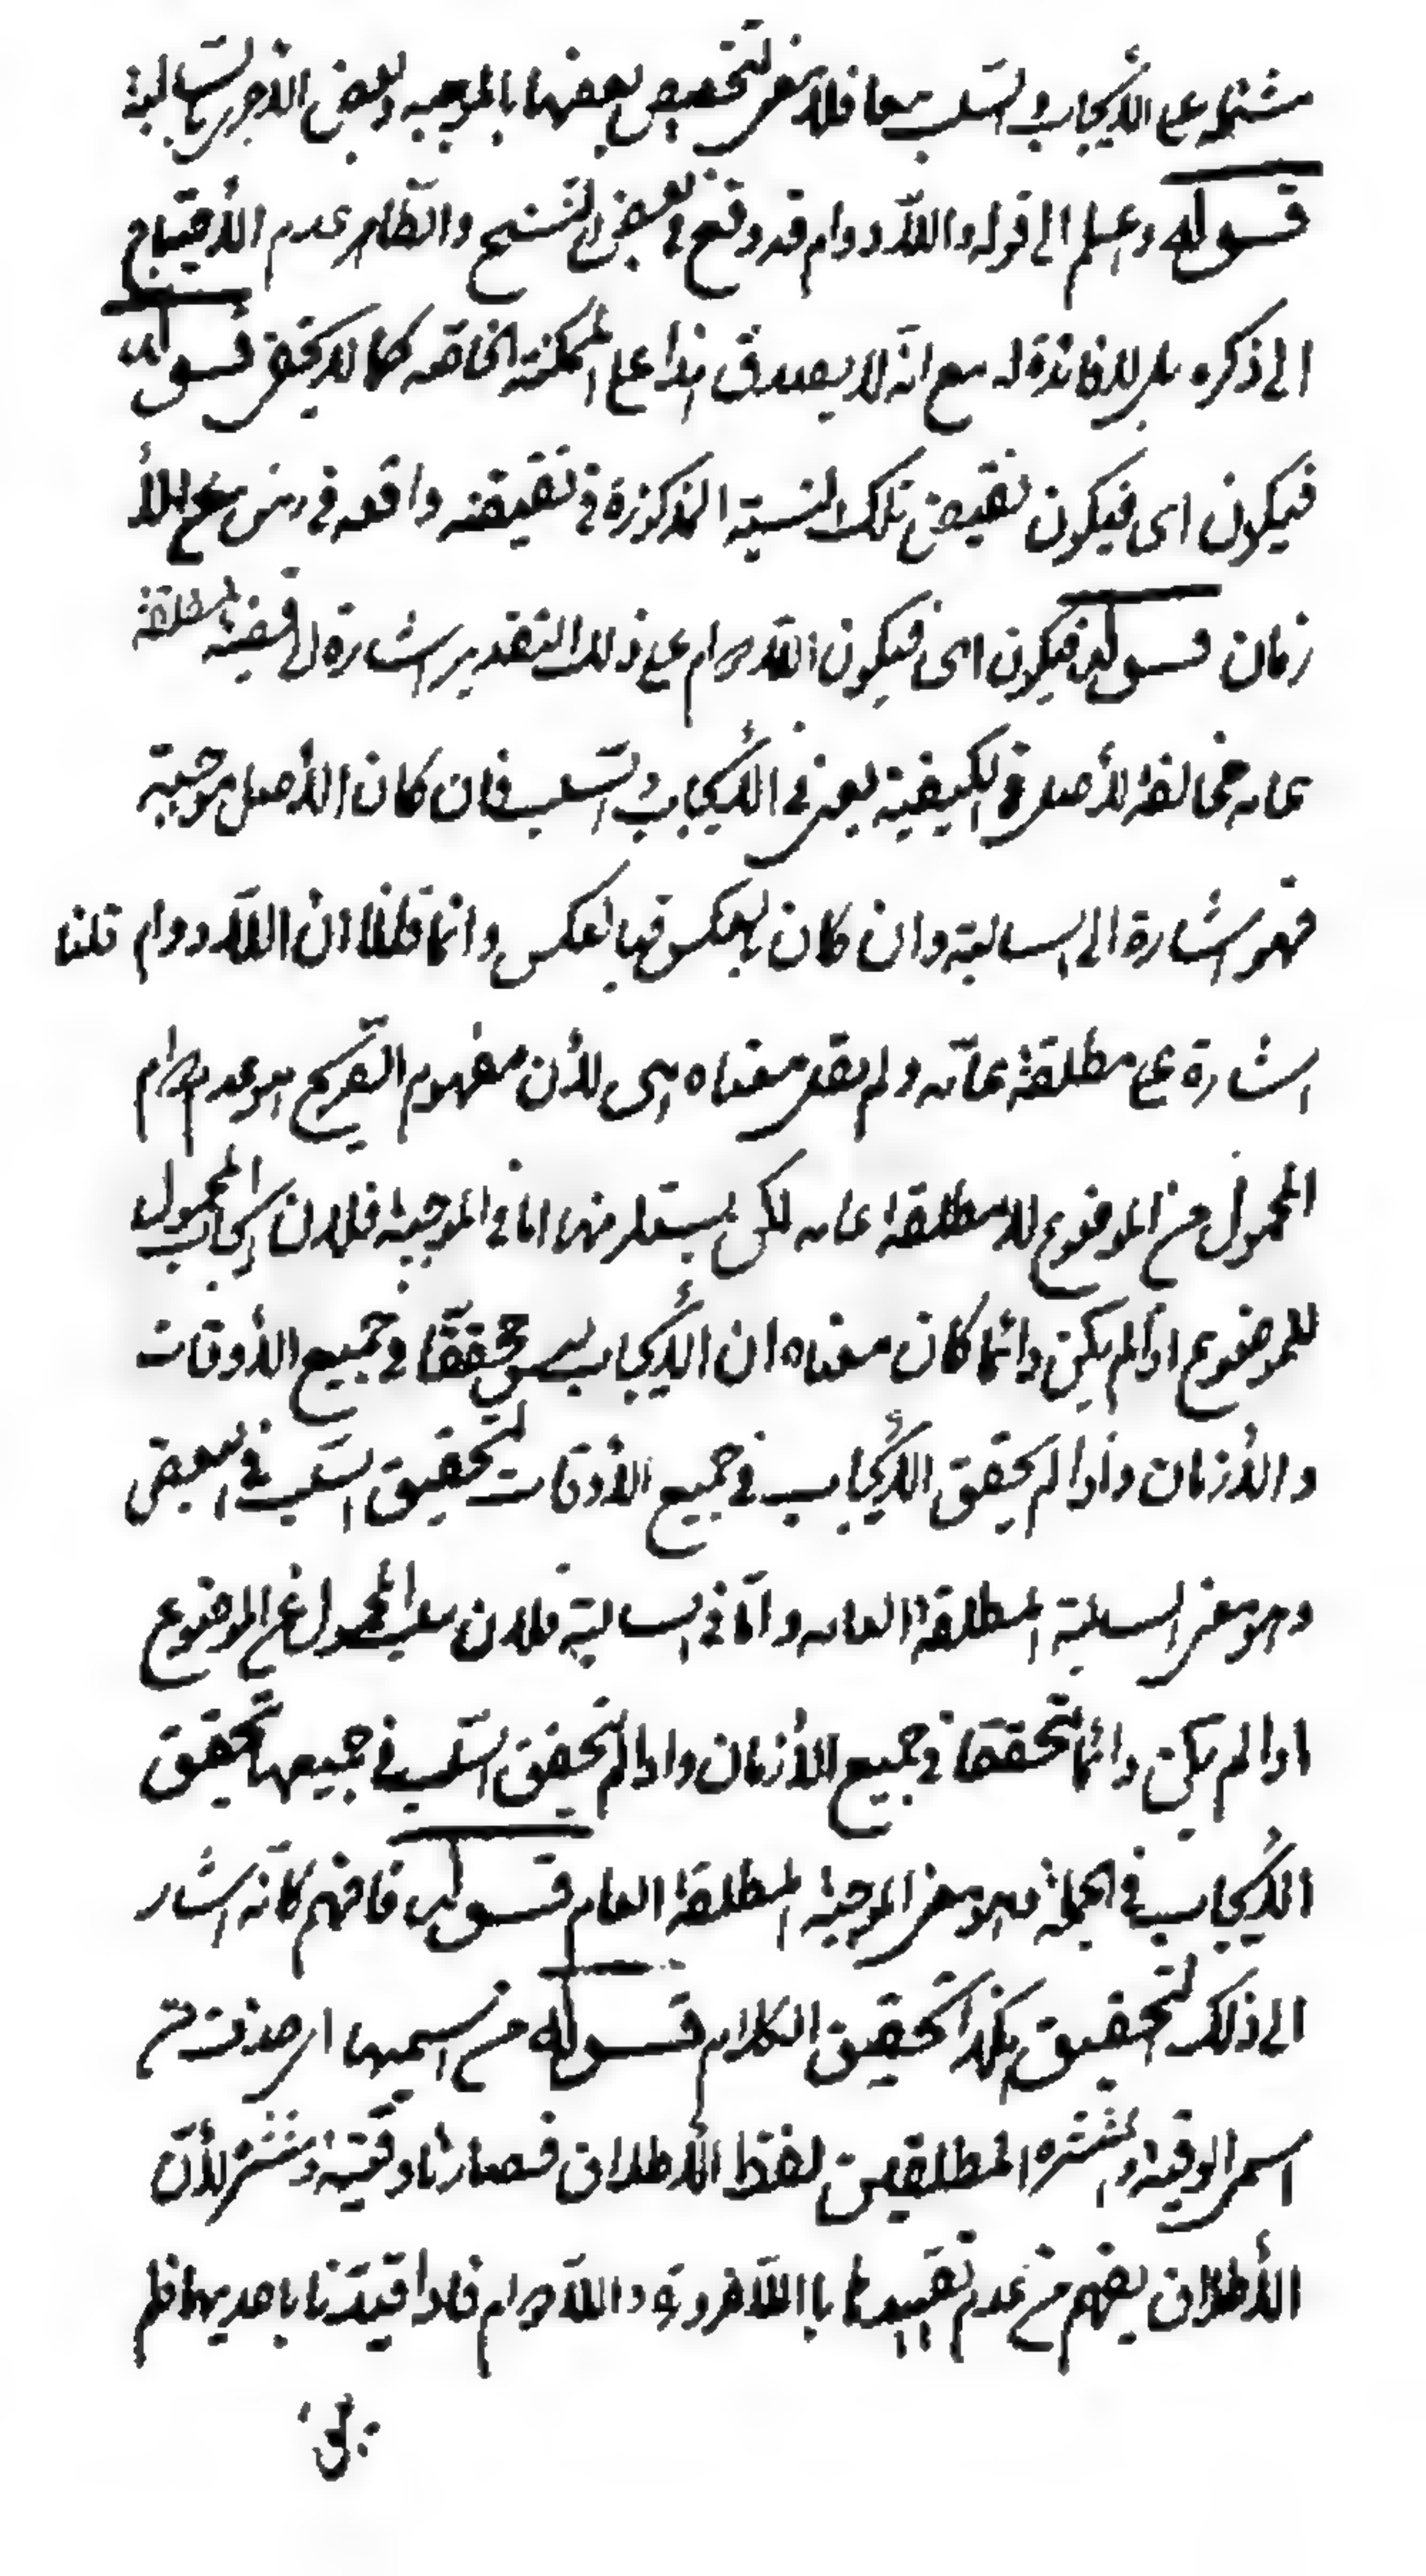 مشتملة على الأيجاب والسلب معا فلا معنى لتخصيص بعضها بالموجبه وبعض الاخرى بالسالبة
قوله وعلم الى قوله واللادوام قد وقع في بعض النسخ والظاهر عدم الأحتياج
الى ذكره بل لا فائدة له مع انه لا يصدق هذا على الممكنة الخاصه كما لا يخفى قوله
فيكون اى فيكون نقيض تلك النسبة المذكورة في نقيضه واقعه في زمن من الأ
زمان قوله فيكون اى فيكون اللادوام على ذلك التقدير اشارة الى قضية مطلقة
عامه مخالفة للأصل في الكيفية يعنى في الأيجاب والسلب فان كان الأصل موجبة
فهو اشارة الى السالبة وان كان بالعكس فبالعكس وانما قلنا ان اللادوام قلنا
اشارة على مطلقة عامه ولم يقل معناه هى لأن مفهوم الصريح هو عدم دوام
المحمول من الموضوع لا مطلقة عامه لكن يستلزمها اما في الموجبة فلان ايجاب المحمول
للموضوع اذا لم يكن دائما كان معناه ان الأيجاب ليس محققا في جميع الأوقات
والأزمان واذا لم يحقق الأيجاب في جميع الأوقات لتحقيق السلب في البعض
وهو معنى السالبة المطلقة العامه واما في السالبة فلان سلب المحمول عن الموضوع
اذا لم يكن دائما تحققها في جميع الأزمان واذا لم يتحقق السلب في جميعها تحقيق
الأيجاب في الجملة وهو معنى الموجبة المطلقة العام قوله فافهم كانه اشار
الى ذلك التحقيق هكذا تحقيق الكلام قوله من اسميها اى حذفت من
اسمى الوقتية والمنتشره المطلقين لفظ الأطلاق فصارتا وقتية ومنتشر لأن
الأطلاق يفهم من عدم تقييدها باللاضرورة واللادوام فاذا قيدتا باحديهما فلم